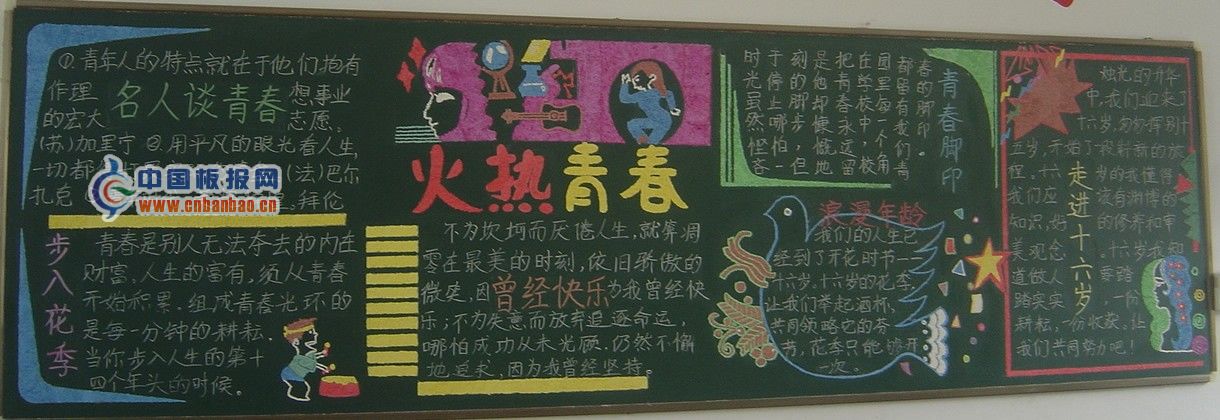 ①青年人的特点就在于他们抱有
作理
名人谈青春
想事业
的宏大
志愿。
(苏)加里宁 ②用平凡的眼光看人生,
一切都
(法)巴尔
扎克
拜伦
中国板报网
www.cnbanbao.cn
步入花季
青春是别人无法夺去的内在
财富、人生的富有,须从青春
开始积累。组成青春光环的
是每一分钟的耕耘、
当你步入人生的第十
四个年头的时候。
火热青春
不为坎坷而厌倦人生,就算凋
零在最美的时刻,依旧骄傲的
微笑,因
曾经快乐
为我曾经快
乐;不为失意而放弃追逐命运,
哪怕成功从未光顾,仍然不懈
地追求,因为我曾经坚持。
青春脚印
春的脚印。
都留有我们青
园里每一个角
在学校中,校
把青春永远留
是他却慷慨地
刻的脚步,但
于停止哪怕一
时光虽然悭吝
浪漫年龄
我们的人生已
经到了开花时书一一
十六岁、十六岁的花季,
让我们举起酒杯,
共同领略它的芬
芳,花季只能够开
一次。
走进十六岁
烛光的升华
中,我们迎来了
十六岁,匆匆挥别十
五岁,开始了我崭新的旅
程。十六
岁的我懂得
我们应
该有渊博的
知识,好
的修养和审
美观念
十六岁我知
道做人
要踏
踏实实
一份
耕耘,一份收获,让
我们共同努力吧!